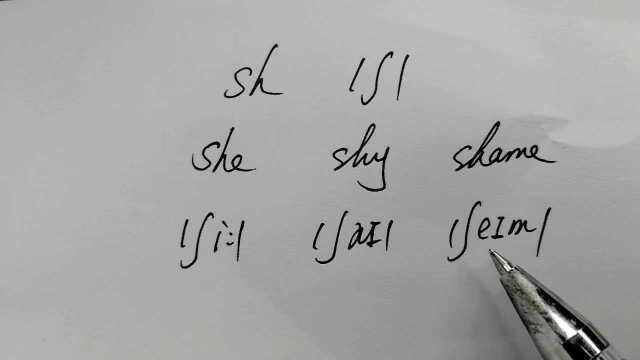 sh /ʃ/
she shy shame
/ʃi:/ /ʃaɪ/ /ʃeɪm/